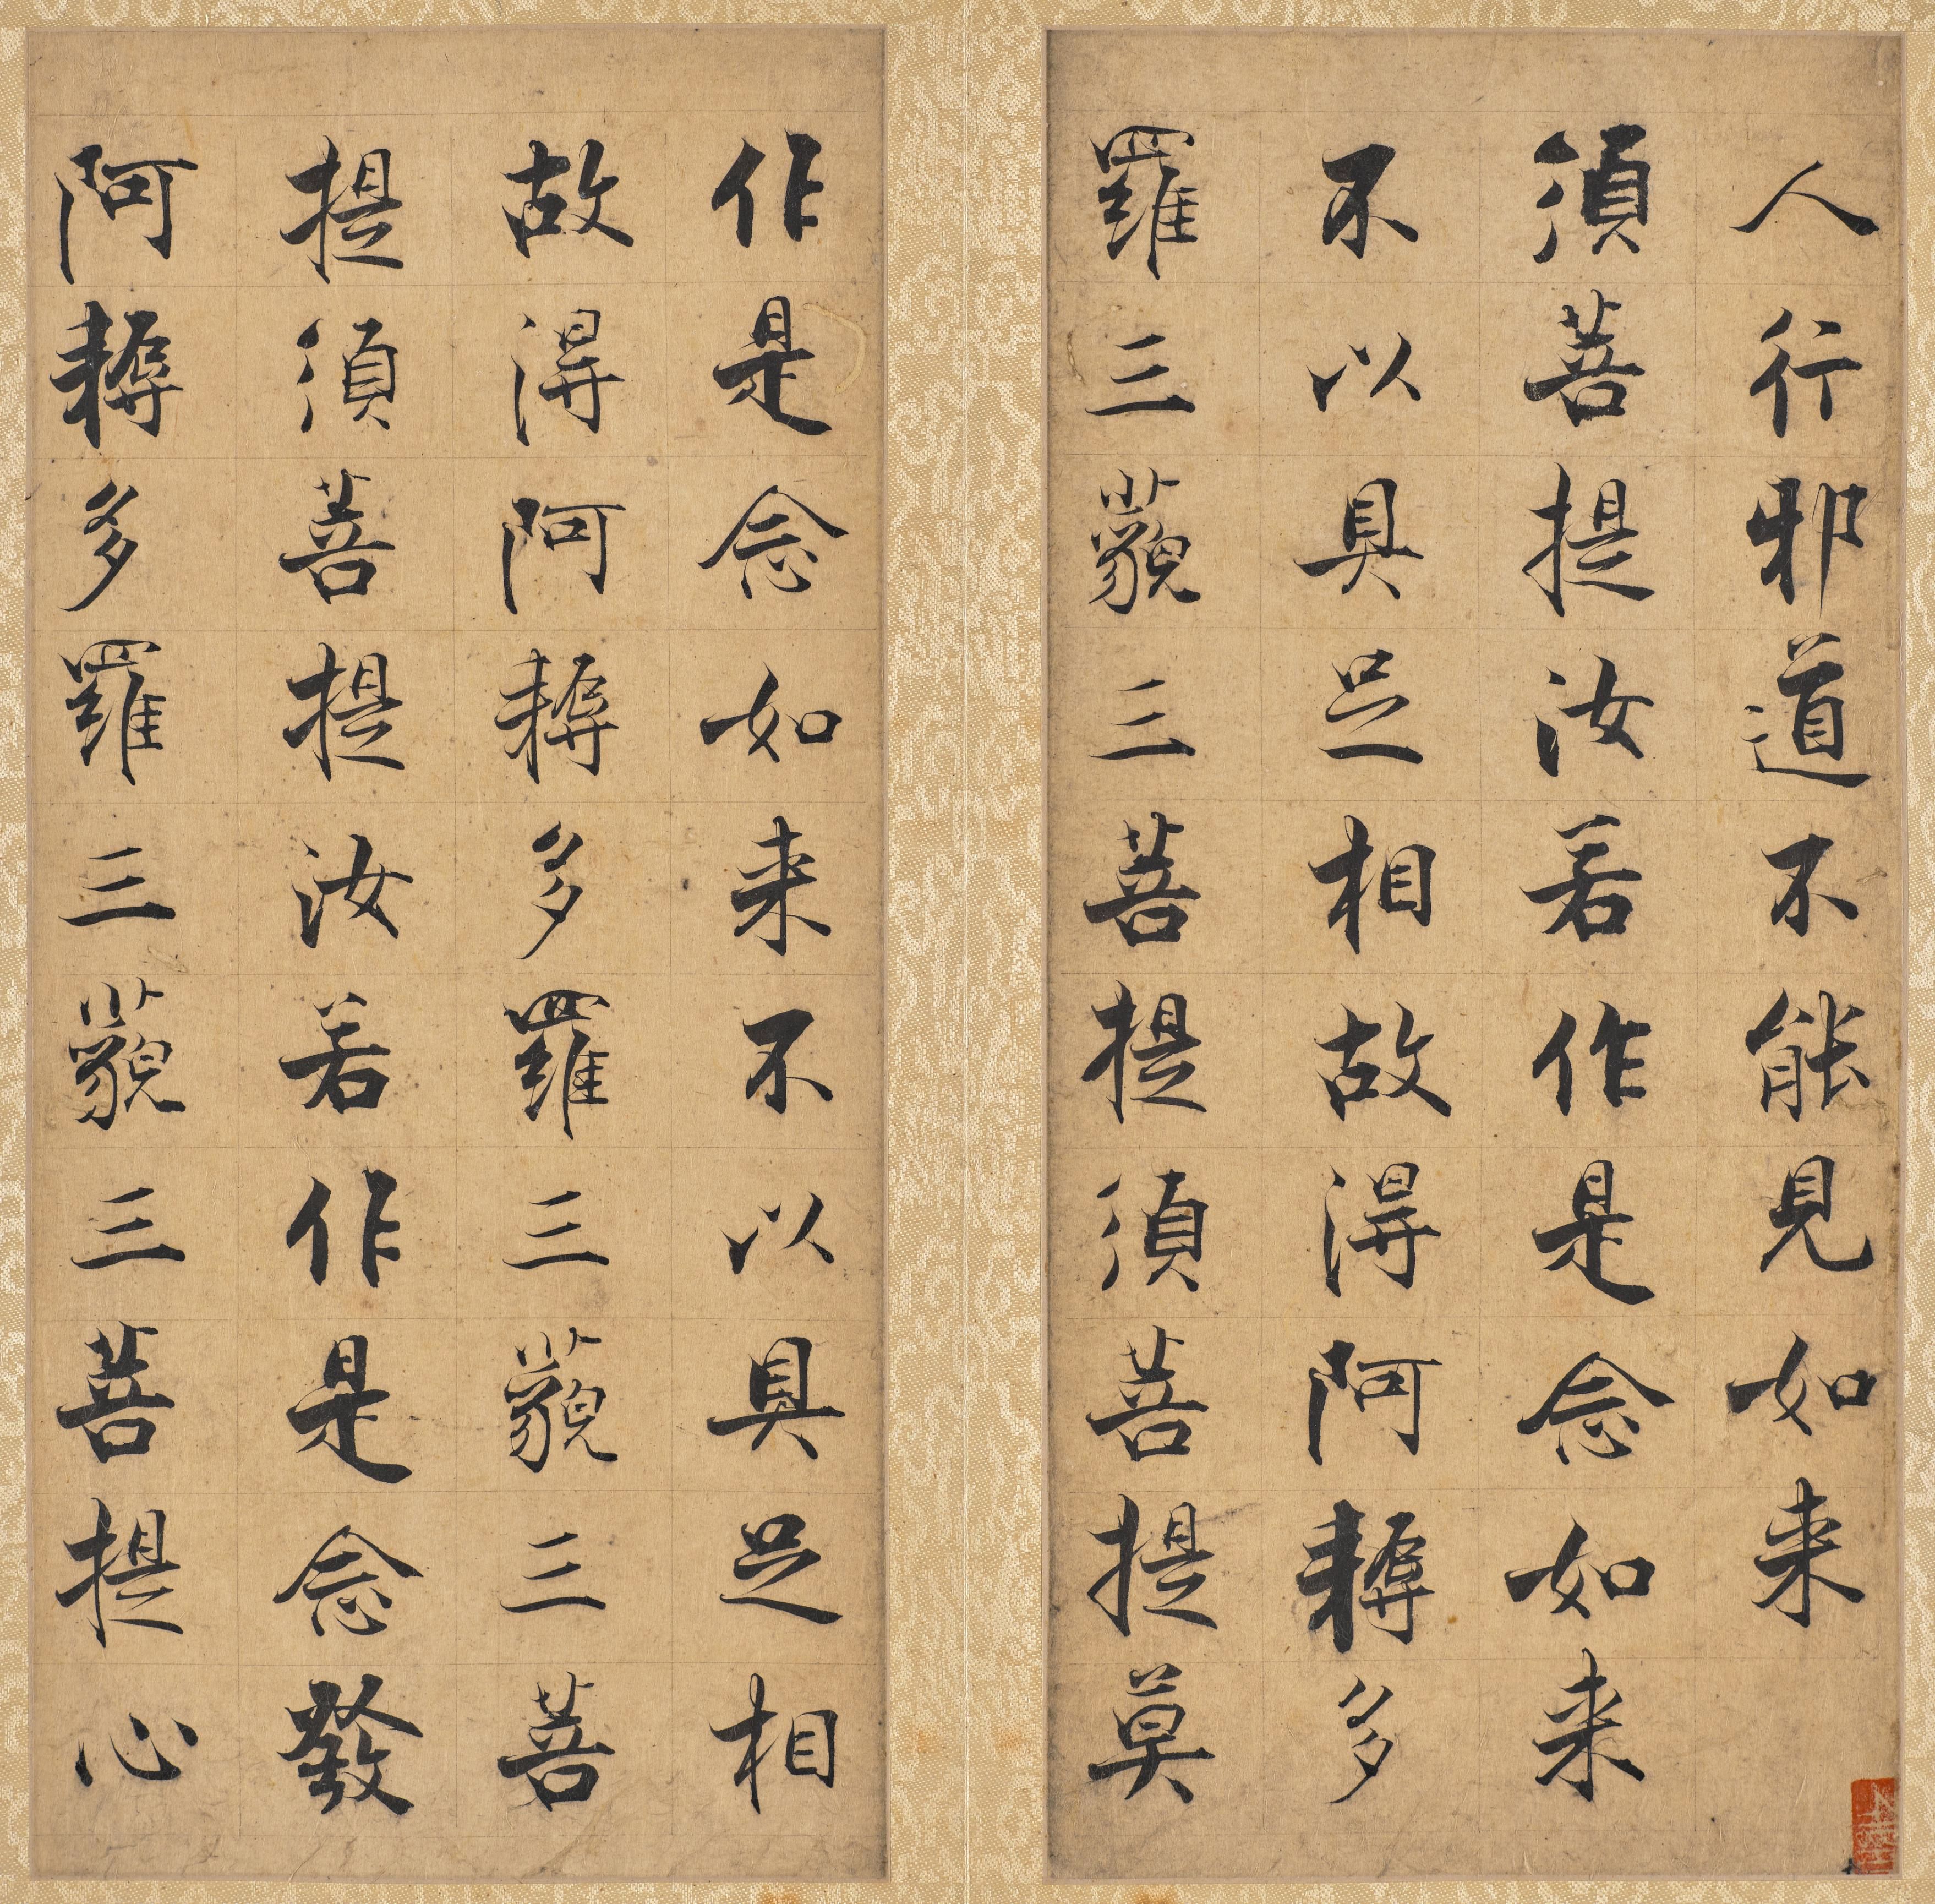 人行邪道不能見如来
須菩提汝若作是念如来
不以具足相故得阿耨多
羅三藐三菩提須菩提莫
作是念如来不以具足相
故得阿耨多羅三藐三菩
提須菩提汝若作是念發
阿耨多羅三藐三菩提心